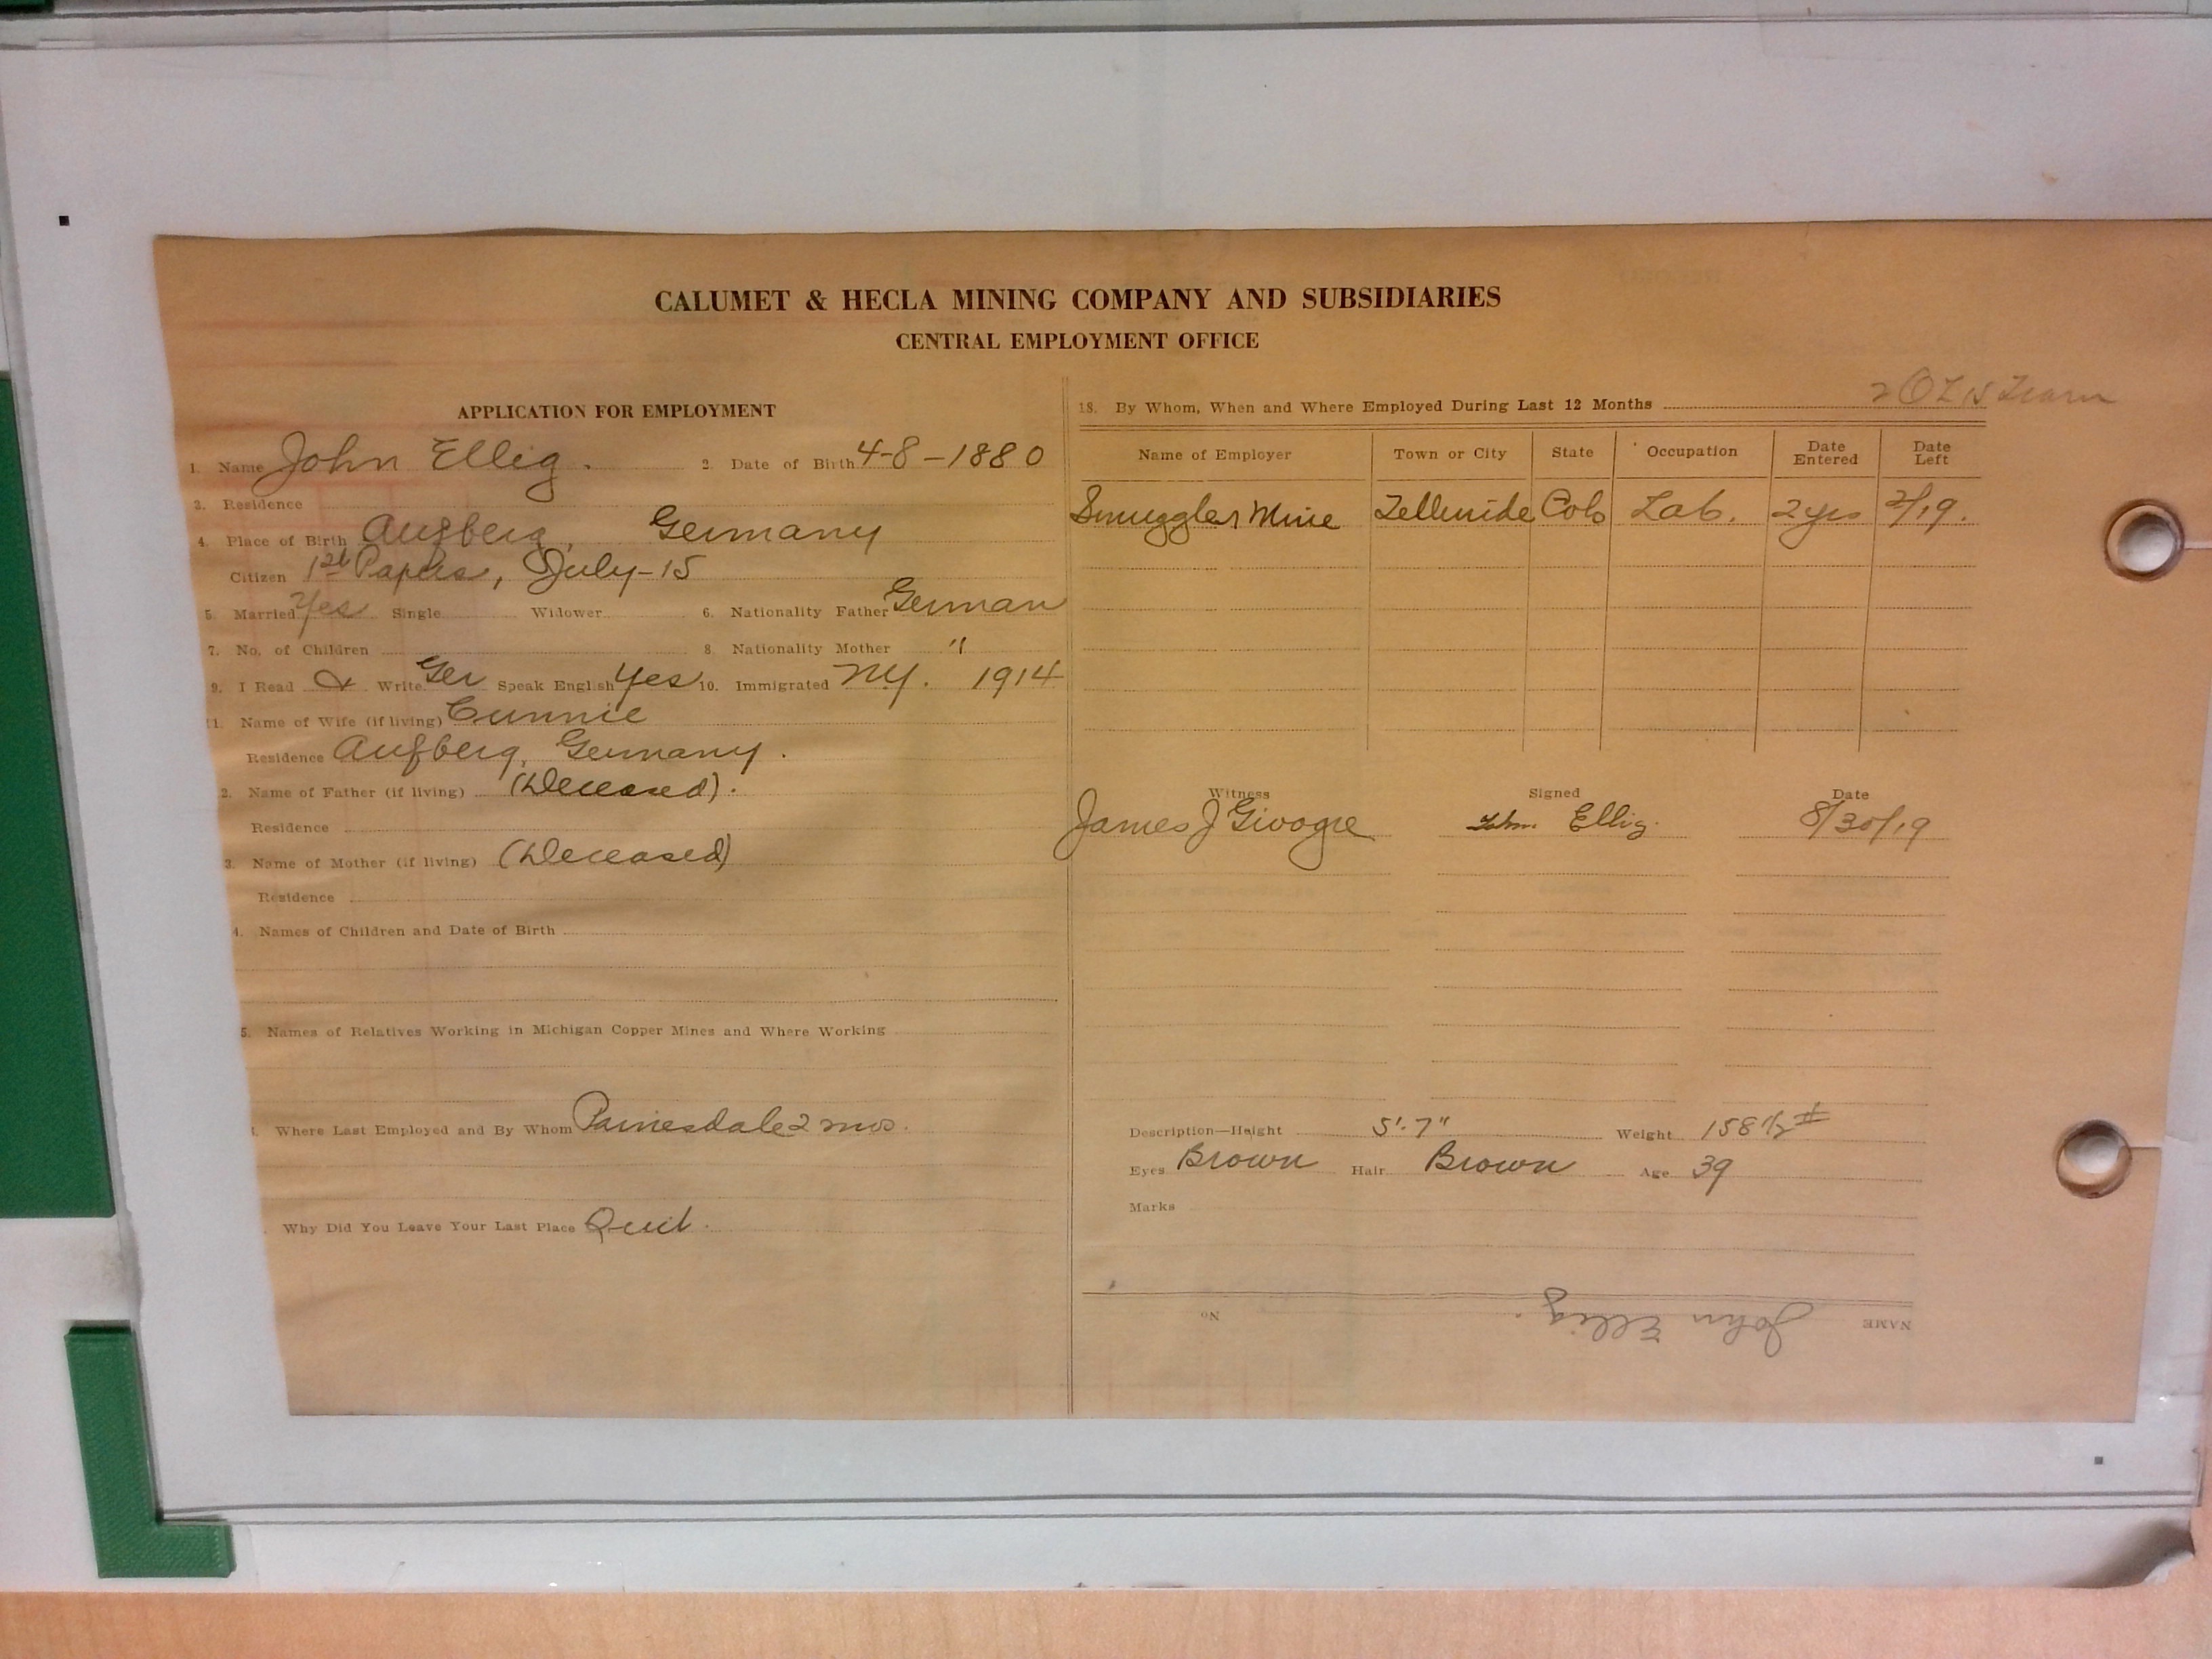 CALUMET & HECLA MINING COMPANY AND SUBSIDIARIES
CENTRAL EMPLOYMENT OFFICE
APPLICATION FOR EMPLOYMENT
1. Name John Ellig. 2. Date of Birth 4-8-1880
3. Residence
4. Place of Birth Augberg, Germany
Citizen 1st Papers, July-15
5. Married Yes Single Widower 6. Nationality Father German
7. No. of Children 8. Nationality Mother "
9. I Read & Write Ger Speak English Yes 10. Immigrated NY. 1914
11. Name of Wife (if living)
Residence Augberg, Germany.
2. Name of Father (if living) (Deceased).
Residence
3. Name of Mother (if living) (Deceased)
Residence
4. Names of Children and Date of Birth
5. Names of Relatives Working in Michigan Copper Mines and Where Working
Where Last Employed and By Whom Painesdale 2 mos.
Why Did You Leave Your Last Place Quit.
18. By Whom, When and Where Employed During Last 12 Months
Name of Employer Town or City State Occupation Date Entered Date Left
Smuggler Mine Telluride Colo Lab. 2 yrs 2/19.
Witness Signed Date
James J John Ellig. 8/30/19
Description—Height 5'-7" Weight 158 1/2 #
Eyes Brown Hair Brown Age 39
Marks
NAME John Ellig. No